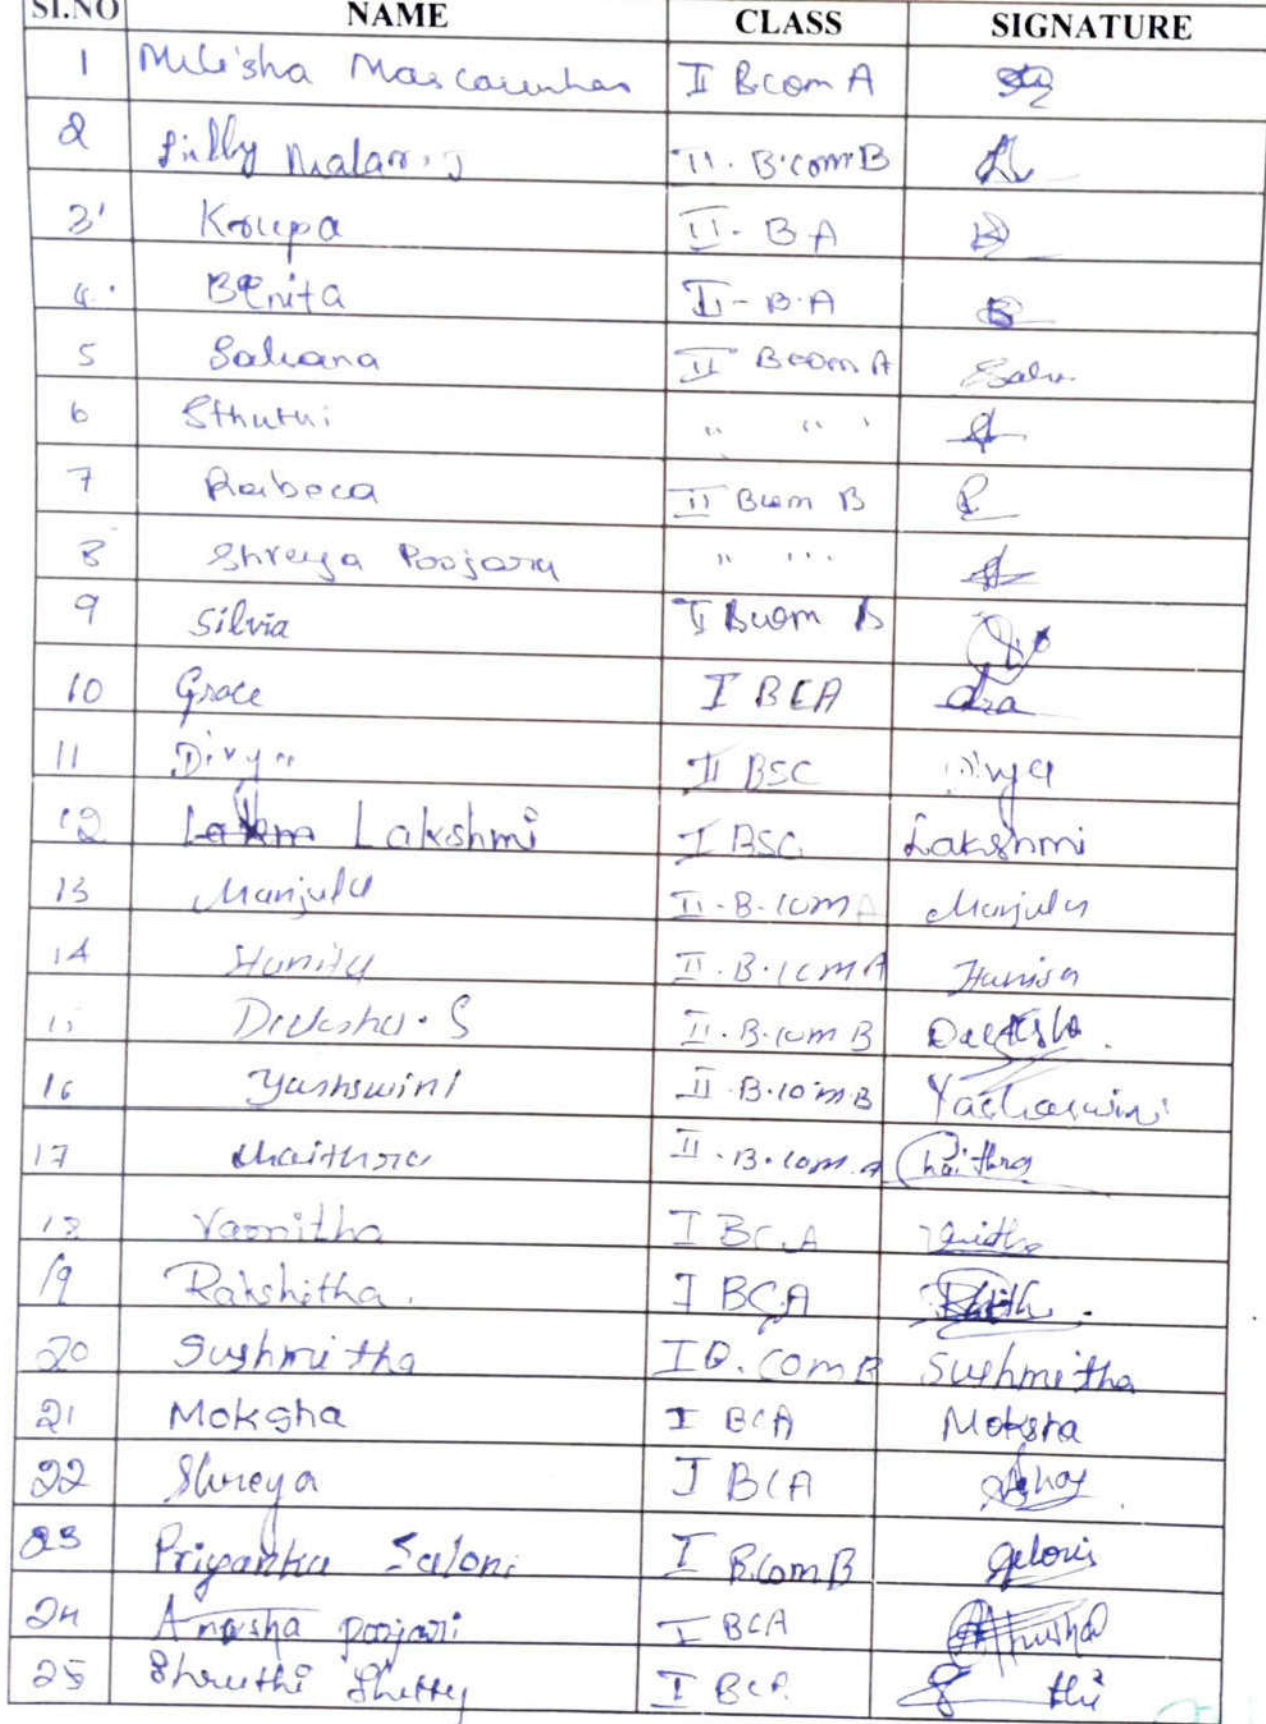 SI.NO NAME CLASS SIGNATURE
1 Milisha Mascarenhas I B.com A
2 Lilly II. B.com B
3 Krupa II - BA
4. Benita II - B.A
5 Sahana II Bcom A Saha
6 Sthuthi " "
7 Rebeca II Bcom B R
8 Shreya Poojary " "
9 Silvia I Bcom B
10 Grace I BCA
11 Divya II BSC Divya
12 Lakshmi I BSC Lakshmi
13 Manjula II - B.com A Manjula
14 II. B.com A
15 Deeksha. S II. B.com B Deeksha.
16 Yashswini II B.com B Yashaswini
17 Chaithra II. B.com. A Chaithra
18 I BCA
19 Rakshitha. I BCA
20 Sushmitha I B.com B Sushmitha
21 Moksha I BCA Moksha
22 Shreya I BCA
23 Priyanka Saloni I B.com B
24 Anusha poojari I BCA Anusha
25 Shruthi Shetty I BCA